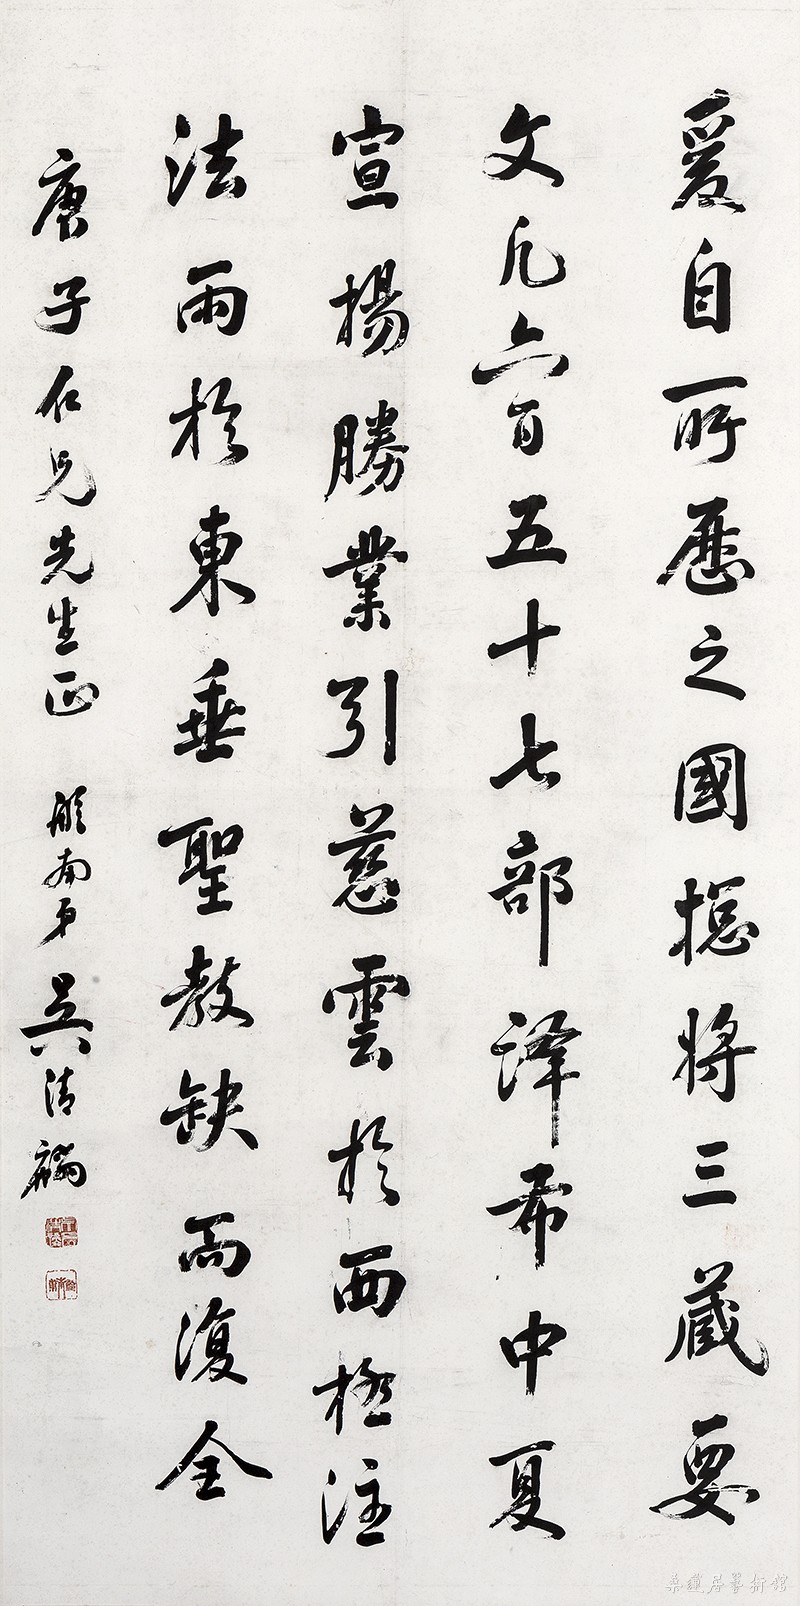 爰自所歷之國揔將三藏要
文凡六百五十七部譯布中夏
宣揚勝業引慈雲於西極注
法雨於東垂聖教缺而復全
庚子仁兄先生正
吳清